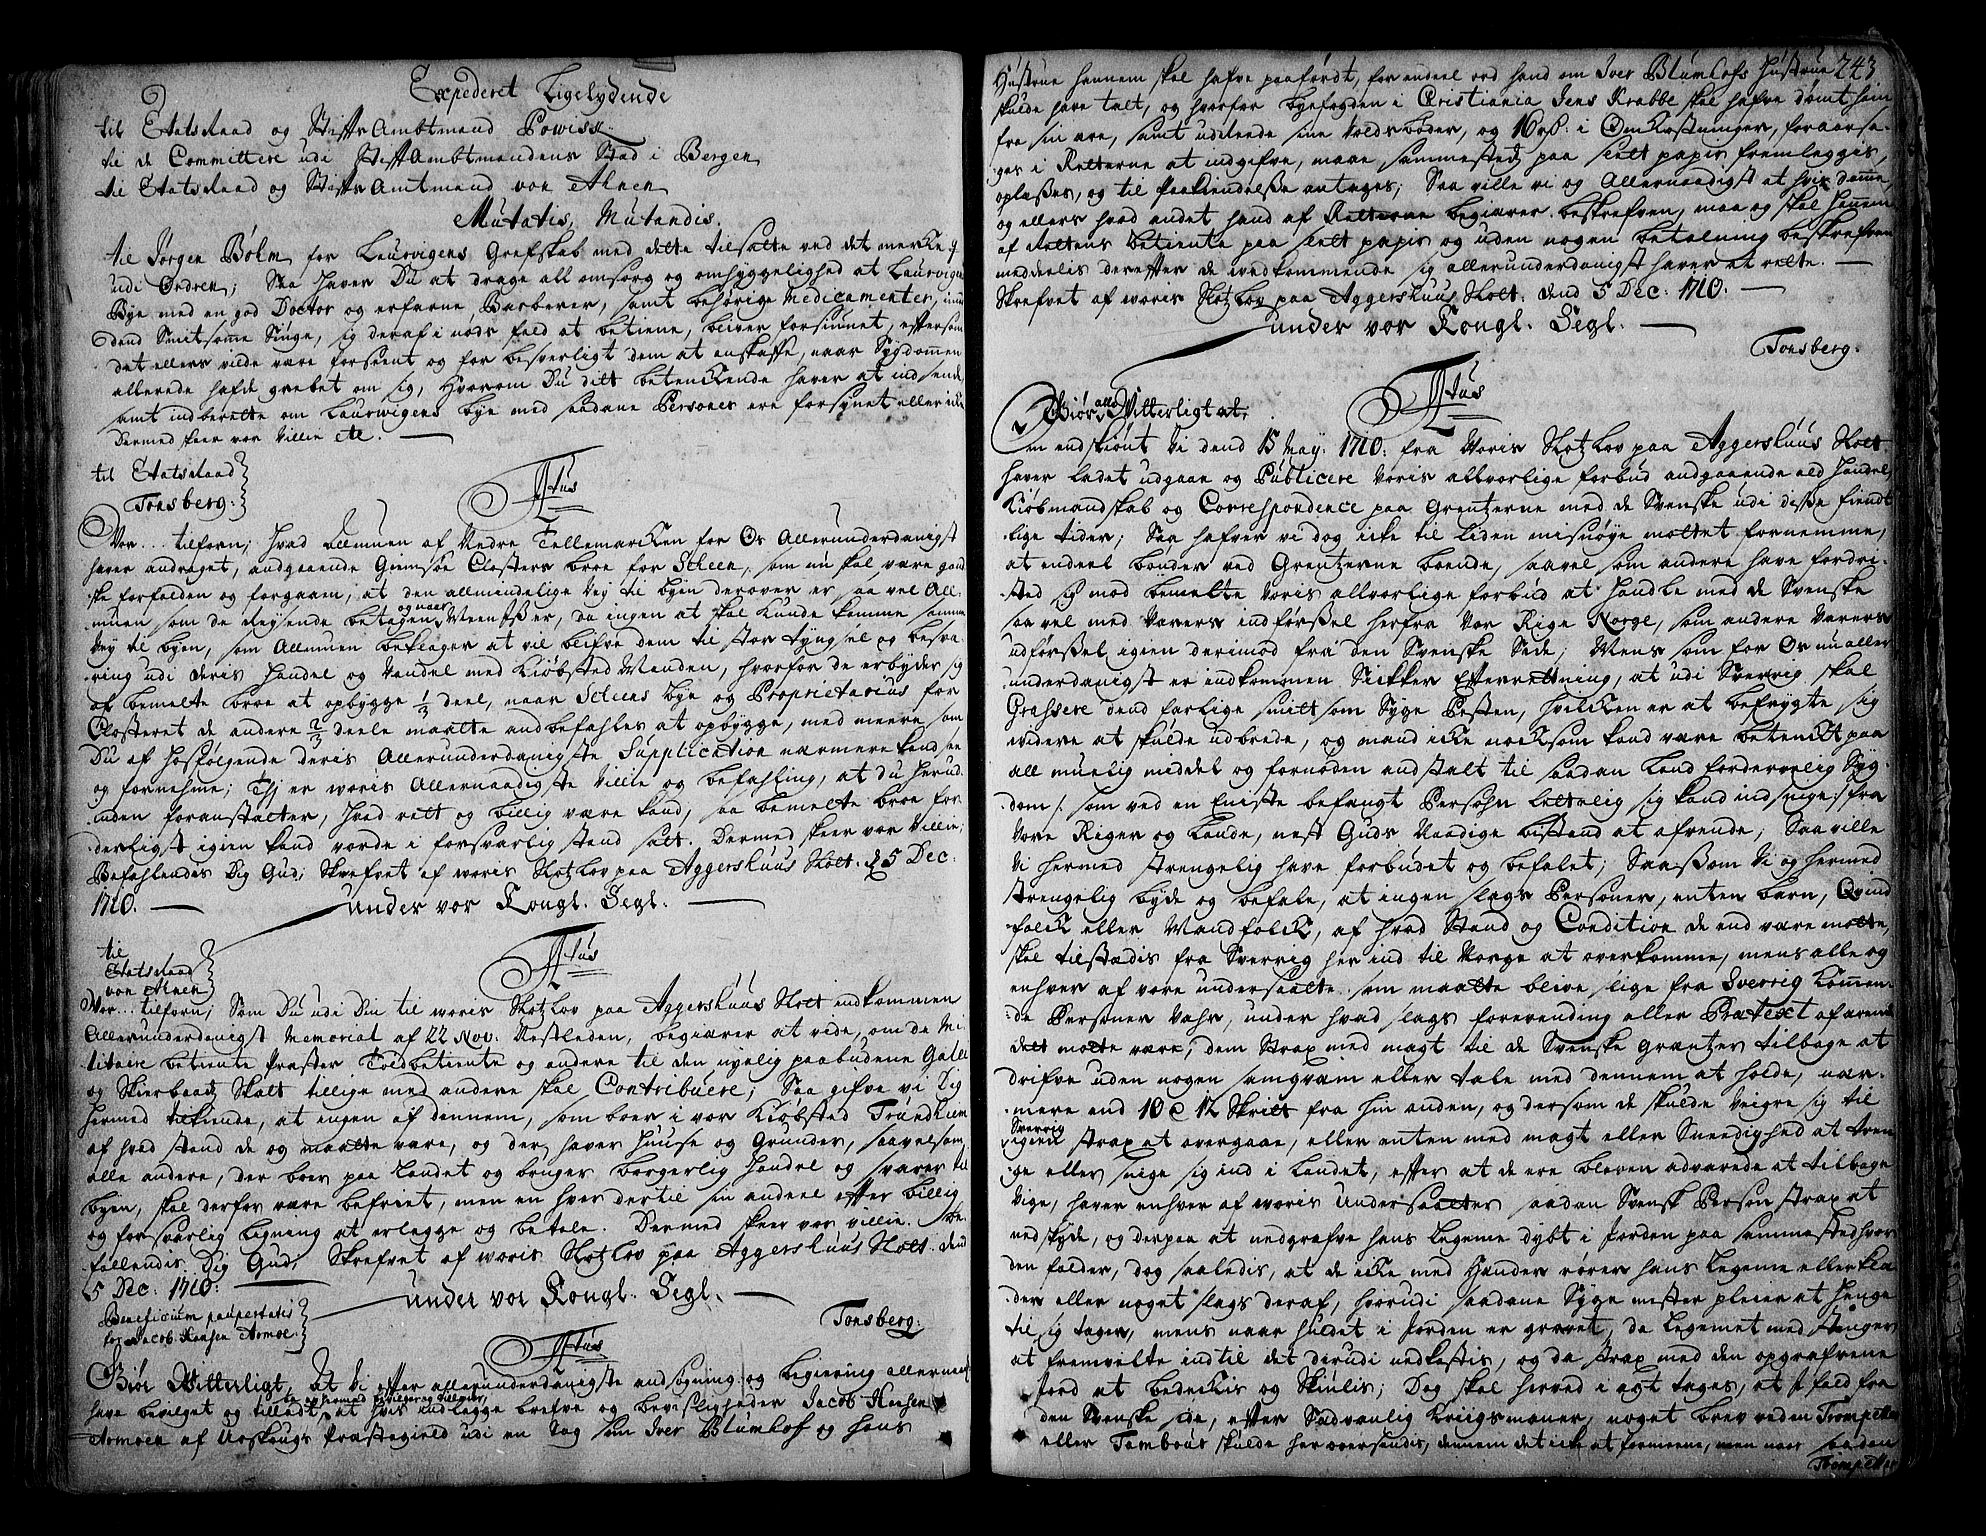 Expederet Ligelydende
til Etatsraad og StiftsAmbtmand Powisk.
til de Committere udi StiftAmbtmandens Stad i Bergen
til Etatsraad og StiftsAmtmand von Ahnen
Mutatis, Mutandis.
til Jørgen Bohm for Laurvigens Grefskab med dette tilsatte ved det merke ɟ
udi Ordren; Saa haver Du at drage all omsorg og omhyggelighed at Laurvigens
Bye med en god Doctor og erfarne Barberer, samt behørige Medicamenter, imod
dend Smitsomme Siuge, sig deraf i nøds fald at betiene, bliver forsiunet, eftersom
det ellers vilde være forseent og for besverligt dem at anskaffe, naar Sygdommen
allerede hafde grebet om sig, hvorom Du dit betenckende haver at indsende
samt indberette om Laurwigens bye med saadane Persones ere forsynet eller icke
Dermed skeer vor Villie etc.
til Etatsraad
Tonsberg.
F4tus
Vor... tilforn; hvad Allmuen af Nedre Tellemarcken for Os Allerunderdanigst
haver andraget, andgaaende Giemsøe Closters broe for Scheen, som nu skal være gand
ske forfalden og forgaaen, at den allmindelige Vey til byen derover er saa vel All-
muen som de reysende betagen, og naar Meenis er, da ingen at skal kunde komme samme
Vey til byen, som Allmuen beklager at vil blifve dem til stor tyngsel og besvæ-
ring udi deris Handel og Vandel med Kiøbsted Manden, hvorfor de erbyder sig
af bemelte broe at opbygge 1/3 deel, naar Scheens bye og Proprietarius for
Closteret de andere 2/3 deele maatte andbefahles at opbygge, med meere som
Du af hosfølgende deris Allerunderdanigste Supplication nærmere hand see
og fornehme; Thj er woris Allernaadigste Villie og befahling, at du herud-
inden foranstalter, hvad rett og billig være kand, saa bemelte broe for-
derligst igien kand vorde i forsvarlig stand sat. Dermed skeer vor Villie,
Befahlendes Dig Gud; Skrefvet af woris Slotzlov paa Aggershuus Slott. d 5 Dec:
1710.
under vor Kongl. Segl.
til
Etatsraad
von Ahnen
Vor... tilforn; Som Du udi Din til woris Slotzlov paa Aggershuus Slott indkommen
Allerunderdanigst Memorial af 22 Nov. Nestleden, begiærer at vide, om de Mi-
litaire betiente Præster Toldbetiente og andere til den nyelig paabudene Galei
og Skierbaadz Skatt tillige med andere skal Contribuere; Saa gifve vi Dig
hermed tilkiende, at ingen af dennem, som boer i vor Kiøbsted Trundhiem
af hvad stand de og maatte være, og der haver Huuse og Grunder, saavelsom
alle andere, der boer paa Landet og bruger borgerlig Handel og svarer til
byen, skal derfor være befriet, men en hver dertil sin andeel efter billig
og forsvarlig ligning at erlegge og betale. Dermed skeer vor villie. Be-
fallendis Dig Gud. Skrefvet af woris Slotzlov paa Aggershuus Slott. dend
5 Dec: 1710:
under vor Kongl. Segl.
Tonsberg.
Beneficium paupertatis
for Jacob Hansen Aamoe.
Giør Witterligt, At vi efter allerunderdanigste andsøgning og begiering allernaadigst
have bevilget og tilladt, saa og hermed bevilger og tillader, at hvis indlegge brefve og bevisligheder Jacob Hansen
Aamoen af Urskougs Præstegield udi en Sag som Iver Blumhof og hans
Hustrue hannem skal hafve paaførdt, for endeel ord hand om Iver Blumhofs Hustrue 243.
skulde have talt, og hvorfor byefogden i Cristiania Jens Krabbe skal hafve dømt ham
fra sin ære, samt udi sine Voldsbøder, og 16 rd. i Omkostninger, foraarsa-
ges i Retterne at udgifve, maae sammesteds paa slett papir fremleggis,
oplæses, og til Paakiendelse antages; Saa ville vi og Allernaadigst at hvis domme
og ellers hvad andet hand af Retterne begiærer beskrefven, maa og skal hannem
af Rettens betiente paa slett papir og uden nogen betalning beskrefven
meddelis derefter de wedkommende sig allerunderdanigst haver at rette.
Skrefvet af woris Slotzlov paa Aggershuus Slott. dend 5 Dec: 1710.
under vor Kongl. Segl.
Tonsberg.
Giør alle Vitterligt at,
Om endskiønt Vi dend 15 May. 1710. fra Woris Slotzlov paa Aggershuus Slott
haver ladet udgaae og Publicere Voris allvorlige forbud andgaaende ald Handel,
Kiøbmandskab og Correspondence paa Grentzerne med de Svenske udi disse fiendt-
lige tider; Saa hafver vi dog icke til liden misnøye mottet fornemme,
at endeel bønder ved Grentzerne boende, saavel som andere have fordri-
sted sig mod bemelte Voris allvorlige forbud at handle med de Svenske
saa vel med Varers indførsel herfra Vor Rige Norge, som andere Varers
udførsel igien derimod fra den Svenske Side; Mens som for Os nu aller
underdanigst er indkommen Sicker Efterrettning, at udi Sverrig skal
Grassere dend farlige smitsom Syge Pesten, hvilcken er at befrygte sig
videre at skulde udbrede, og mand icke noeksom kand være betenckt paa
all muelig middel og fornøden anstalt til saadan Land fordervelig Syg-
dom /: som ved en Eniste befangt Persohn lettelig sig kand indsnige :/ fra
Vore Riger og Lande, nest Guds Naadige bistand at afvende; Saa ville
Vi hermed strengelig have forbudet og befalet; Saasom Vi og hermed
strengelig byde og befale, at ingen slags Personer, enten barn, Qvind-
folck eller Mandfolck, af hvad Stand og Condition de end være motte,
skal tilstædis fra Sverrig her ind til Norge at overkomme, mens alle og
enhver af vore undersaatte som maatte blive slige fra Sverrig kommen-
de Personer Vahr, under hvad slags forevending eller Prætext af ærende
dett motte være, dem strax med magt til de Svenske Grantzer tilbage at
drifve uden nogen samqvam eller tale med dennem at holde, nær-
mere end 10 a 12 Skritt fra hin anden, og dersom de skulde veigre sig til
Sverrig igien strax at overgaae, eller enten med magt eller Sneedighed at tren-
ge eller snige sig ind i Landet, efter at de ere bleven advarede at tilbage
Vige, haver enhver af woris Undersaatter saadan Svensk Person strax at
nedskyde, og derpaa at nedgrafve hans Legeme dybt i Jorden paa sammested hvor
den falder, dog saaledis, at de icke med Hænder rører hans Legeme eller klæ-
der eller noget slags deraf, hvorudi saadane Syge mester pleier at henge
til sig tager, mens naar hullet i Jorden er gravet, da legemet med stænger
at fremvelte indtil det derudi nedkastis, og da strax med den opgrafvene
Jord at bedeckis og skiulis; Dog skal herved i agt tages, at i fald fra
den Svenske Side, efter Sædvanlig Kriigsmaner, noget brev ved en Trompetter
eller Tambour skulde her oversendis, dennem det icke at formeene, men naar saadan
Trompetter